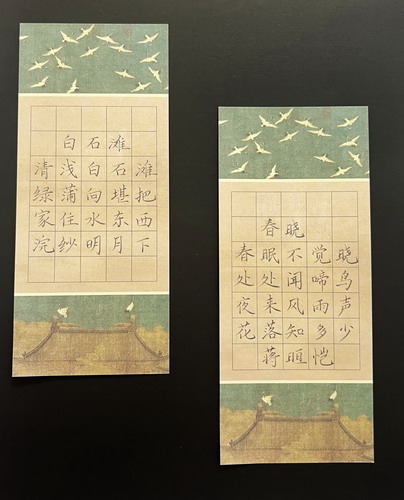 白石滩
清浅白石滩
绿蒲向堪把
家住水东西
浣纱明月下
春晓
春眠不觉晓
处处闻啼鸟
夜来风雨声
花落知多少
蒋晅恺